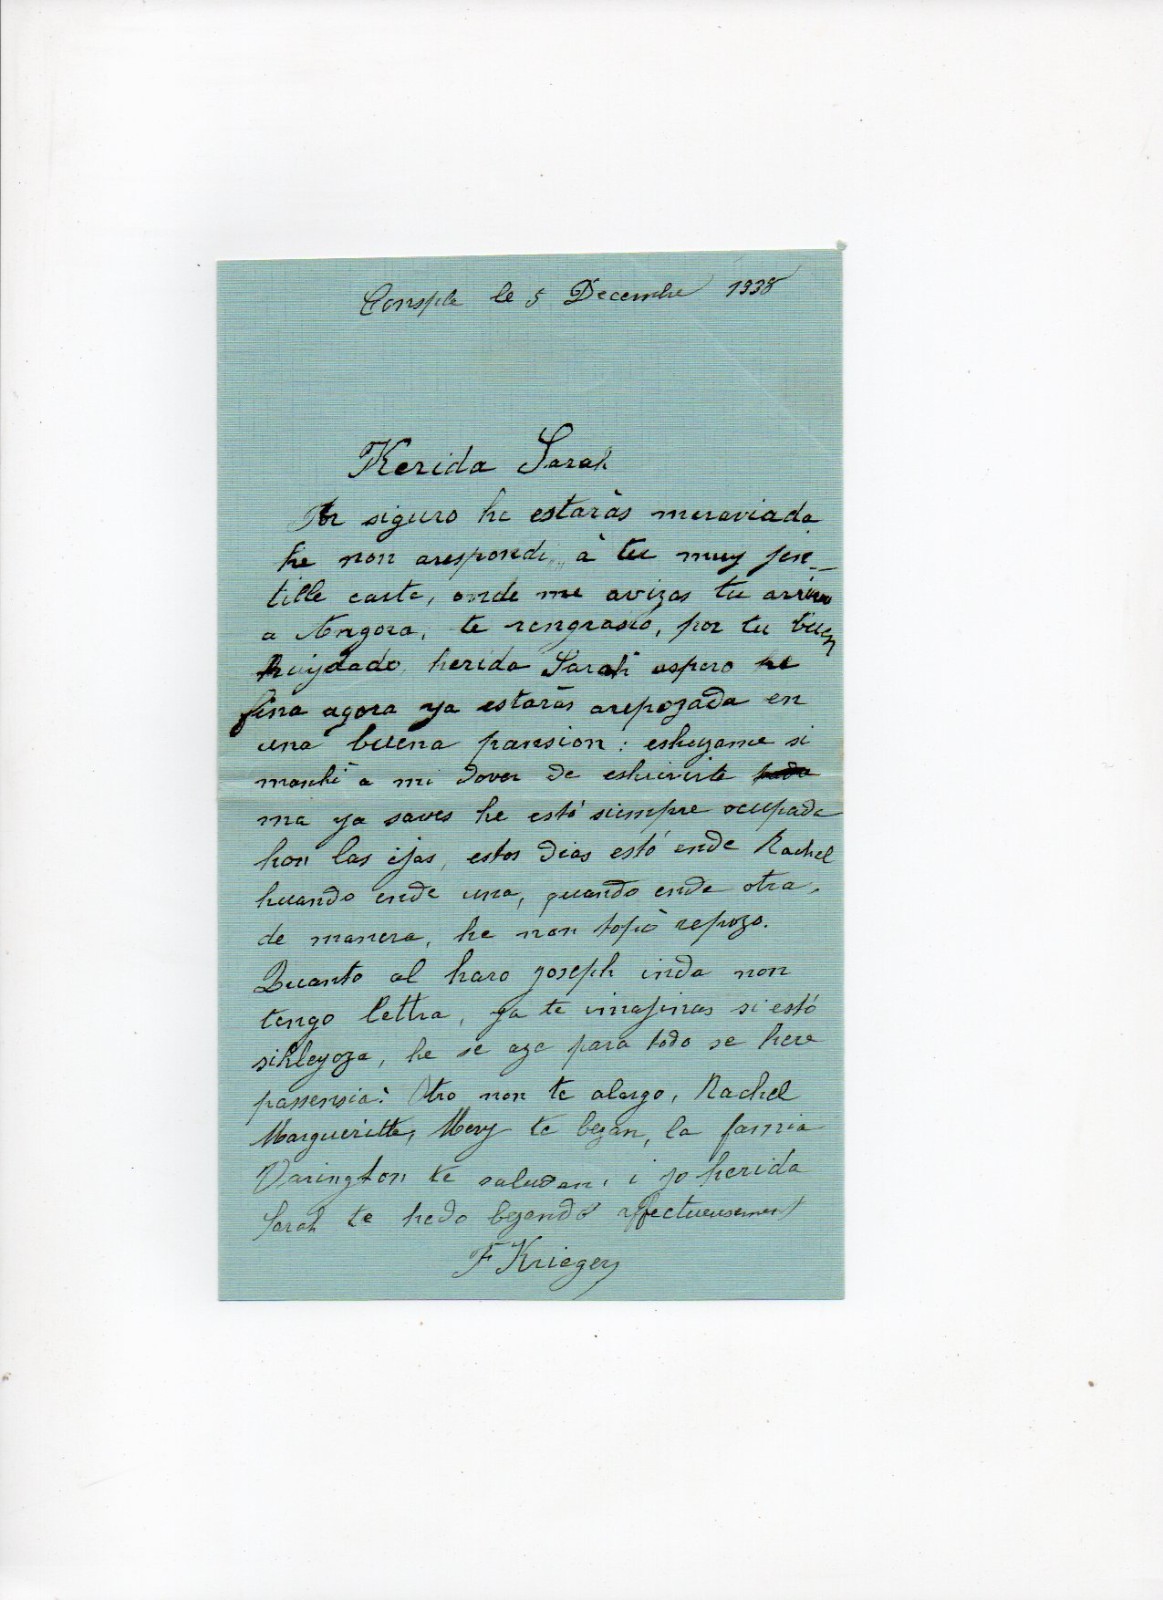 Consple le 5 Decembre 1938
Kerida Sarah
Por siguro ke estaràs meraviada
ke non arespondi à tu muy jen-
tille carta, onde me avizas tu arrivo
a Angora, te rengrasio, por tu buen
kuydado, kerida Sarah espero ke
fina agora ya estaràs arepozada en
una buena pansion: eskuzame si
mankî a mi dover de eskrivirte
ma ya saves ke estó siempre ocupada
kon las ijas, estos dias estó ende Rachel
kuando ende una, quando ende otra,
de manera, ke non topo repozo.
Quanto al karo Joseph inda non
tengo lettra, ya te imajinas si estó
sikleyoza, ke se aga para todo se kere
passensia: Otro non te alargo, Rachel
Margueritte, Mery te bezan, la famia
Varington te saludan, i jo kerida
Sarah te kedo bezando affectueusement
F Krieger